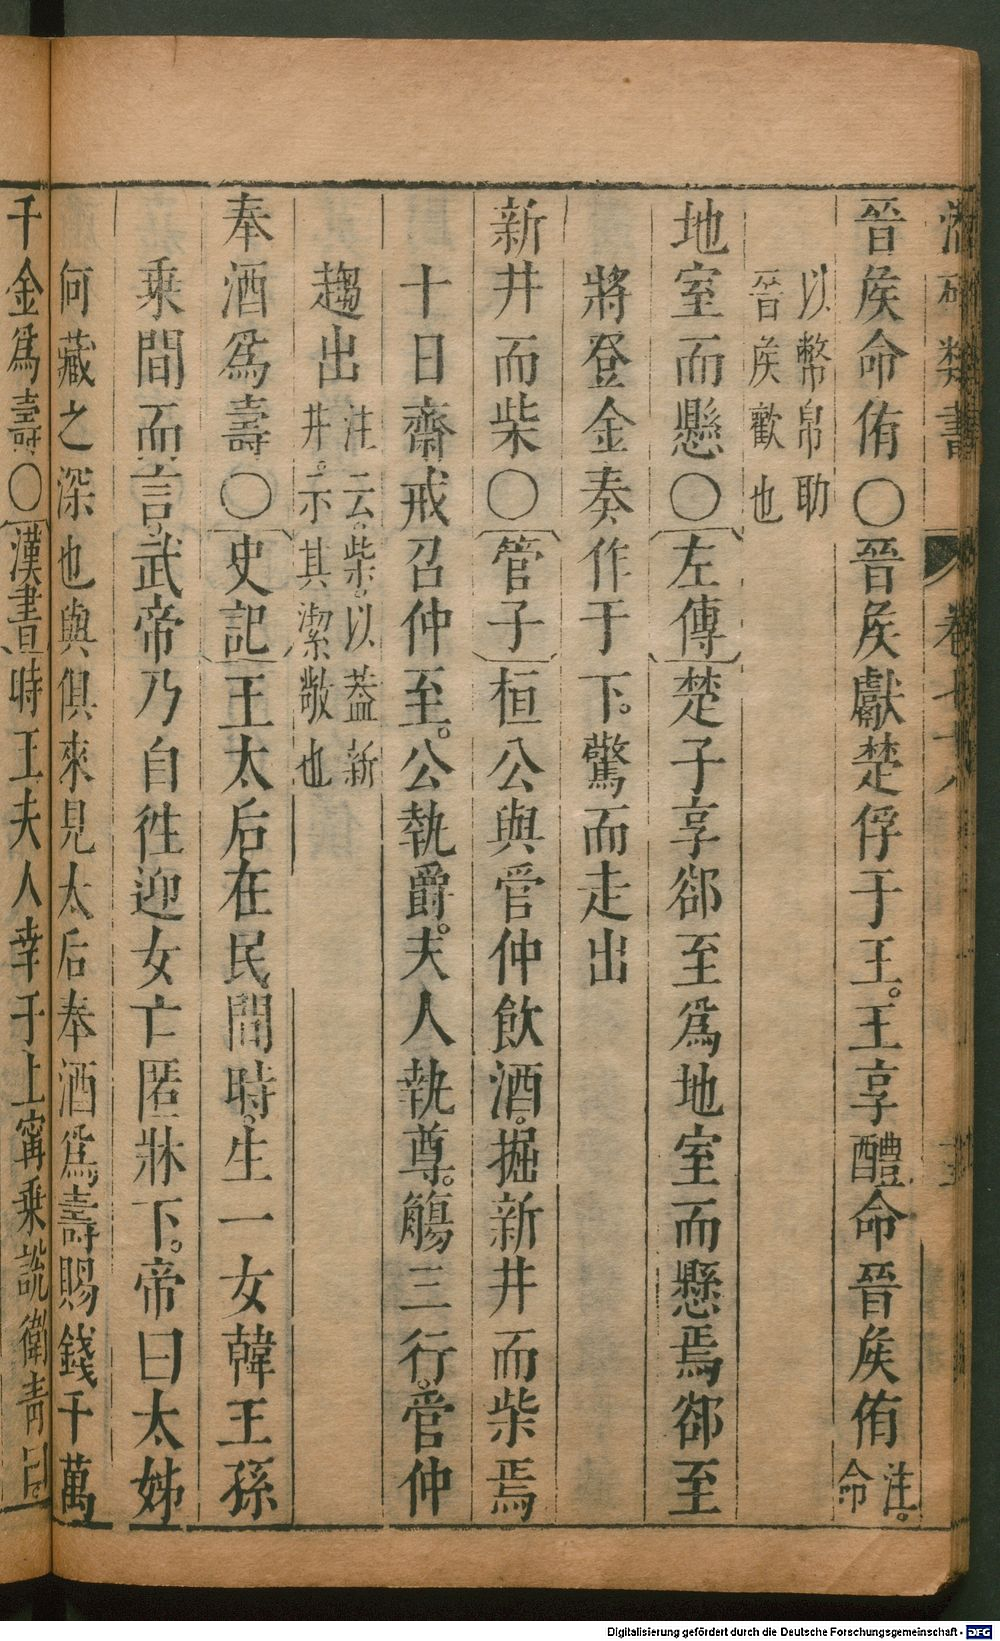 類書 卷
晉侯命侑〇晉侯獻楚俘于王。王享醴命晉侯侑注。命
以幣帛助
晉侯歡也
地室而懸〇〔左傳〕楚子享郤至爲地室而懸焉郤至
將登金奏作于下。驚而走出
新井而柴〇〔管子〕桓公與管仲飲酒。掘新井而柴焉
十日齋戒召仲至。公執爵。夫人執尊。觴三行。管仲
趨出注云。柴。以蓋新
井。示其潔敬也
奉酒爲壽〇〔史記〕王太后在民間時。生一女韓王孫
乘間而言。武帝乃自徃迎女亡匿牀下。帝曰太姊
何藏之深也與俱來見太后奉酒爲壽賜錢千萬
千金爲壽〇〔漢書〕時王夫人幸于上甯乘說衛青曰
Digitalisierung gefördert durch die Deutsche Forschungsgemeinschaft - DFG